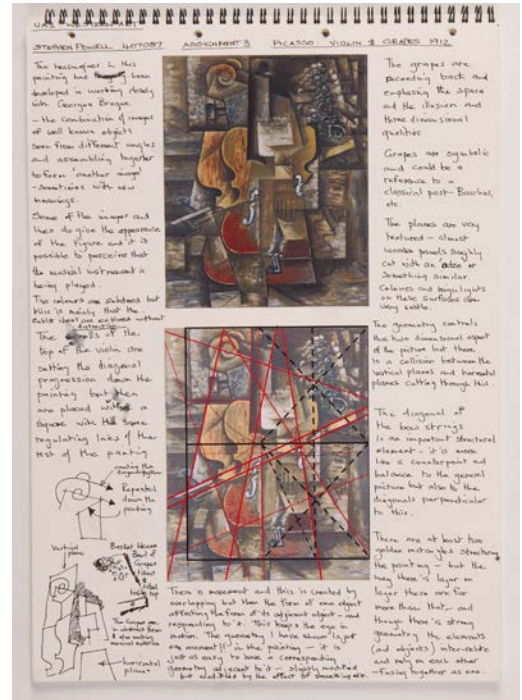 UAS WESTERN ART
STEPHEN POWELL 407087 ASSIGNMENT 3 PICASSO: VIOLIN & GRAPES 1912
The techniques in this
painting had been
developed in working closely
with Georges Braque
- the combination of images
of well known objects
seen from different angles
and assembling together
to form 'another image'
- sometimes with new
meanings.
Some of the images and
lines do give the appearance
of the figure and it is
possible to perceive that
the musical instrument is
being played.
The colours are subdued but
this is mainly that the
cubist ideas are explored without
distraction.
The scrolls of the
top of the violin are
setting the diagonal
progression down the
painting but then
are placed within a
square with the same
regulating lines of the
rest of the painting
Repeated
down the
painting
Vertical
plane
Bowl of
Grapes
table top
horizontal
plane
The grapes are
receding back and
emphasing the space
and the illusion and
three dimensional
qualities
Grapes are symbolic
and could be a
reference to a
classical past - Bacchus,
etc.
The planes are very
textured - almost
wooden panels roughly
cut with an adze or
something similar.
Colours and highlights
on these surfaces are
very subtle.
The geometry controls
the two dimensional aspect
of the picture but there
is a collision between the
vertical planes and horizontal
planes cutting through this.
The diagonal of
the bow strings
is an important structural
element - it is more
like a counterpoint and
balance to the general
picture but also to the
diagonals perpendicular
to this.
There are at least two
golden rectangles structuring
the painting - but the
way there is layer on
layer there are far
more than that - and
though there is strong
geometry the elements
(and objects) inter-relate
and rely on each other
- fusing together as one.
There is movement and this is created by
overlapping but then the form of one object
affecting the form of its adjacent object - and
responding to it. This keeps the eye in
motion. The geometry I have shown is just
one moment in the painting - it is
just as easy to have a corresponding
geometry adjacent to it - slightly modified
but additional by the effect of something else.